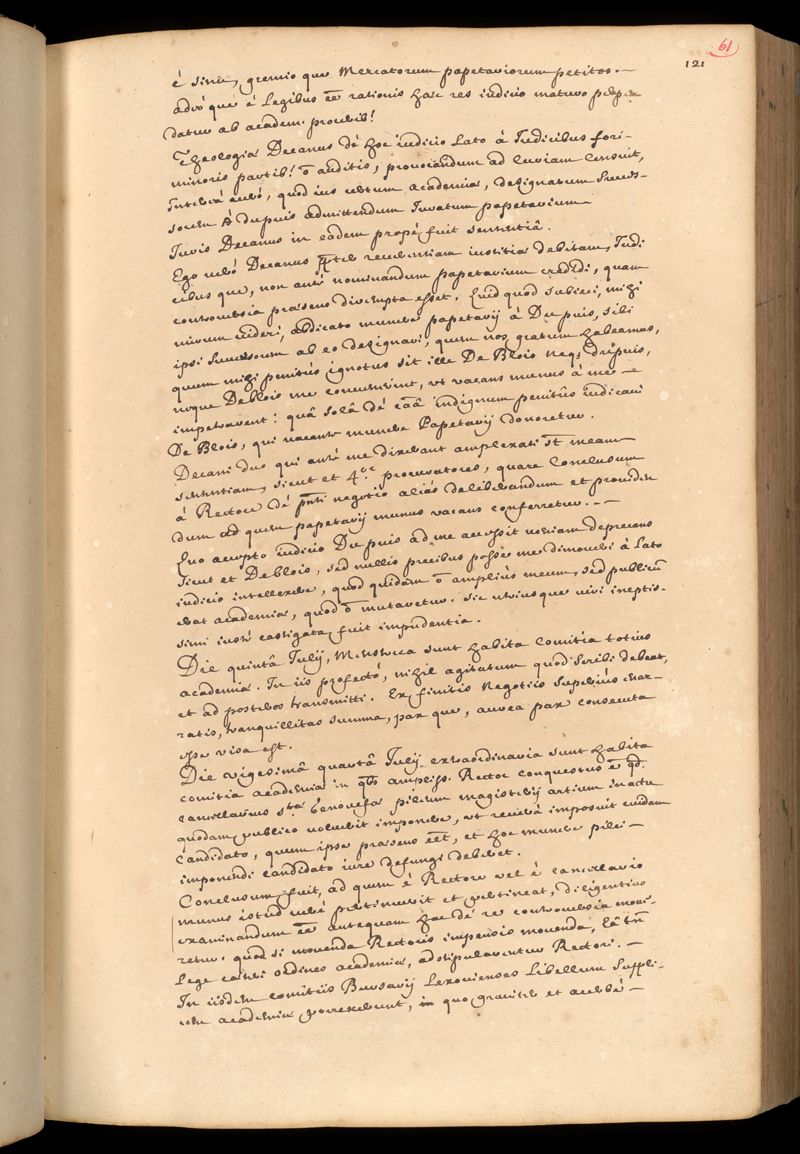 61
121
è sinu, gremio que Mercatorum papetariorum petitos. —
adeò que è Legibus eē rationis hac res iudicio maturo
datur ab academ. proceribs!
Theologiæ Decanus dé hoc iudicio Lato à Iudicibus fori —
minoris partibs! ō auditis, provocandum ad Curiam Censuit,
quod ius cautum academiæ, designatum Succes-
sorem A Dupuis admittendum Iuratum papetarium —
Iuris Decanus in eadem propè fuit sententiâ.
Ego verò Decanus reverentiam iustitiæ debitam, Iudi
cibus que, non antè nominandum papetarium credidi, quam
controversia præsens dirempta esset. Quid quod subieci, mihi
mirum videri, abdicato munere papetarij à Dupuis, sibi
ipsi Successorem ab eo designari, quem nos gratum habeamus,
quum mihi penitùs ignotus sit ille De Blois neqs Dupuis,
neque Deblois me convenirint, vt vacans munus à me —
impetrarent: quâ solâ dé caâ indignum penitùs iudicavi
De Blois, qui vacante munere Papetarij donaretur.
Decani duo qui antè me dixerant amplexati st meam
sententiam, sicut et 4.or procuratores, quare Conclusum
à Rectore dé pnti negotio aliàs deliberandum et providen
dum ad quem papetarij munus vacans conferretur. — —
Quo accepto iudicio Dupuis ad me accessit veniam deprecans
sicut et Deblois, sed nullis precibus posse me dimoveri à Lato
iudicio intellexere, quod quidem ō ampliùs meum, sed publicū
erat academiæ, quod ō mutaretur. Sic utriusque viri ineptis-
simi iustè castigata fuit impudentia.
Die quintâ Julij, Menstrua sunt habita Comitia totius
academiæ. In iis profectò, nihil agitatum quod scribi debeat,
et ad posteros transmitti. Ex finitis Negotiis superiùs enar-
ratis, tranquillitas summa, pax que, aurea pax consecuta
esse visa est.
Die vigesimâ quartâ Julij extraordinaria sunt habita
comitia academiæ in qbs ampliss. Rector conquestus ē qd.
Cancellarius stæ Genovefæ pileum magisterij artium in actu
quodam publico voluerit imponere, vt reverà imposuit cuidam
Candidato, quum ipse præsens eēt, et hoc munere pilei —
imponendi candidato iure defungi deberet.
Conclusum fuit, ad quem è Rectore vel è cancellario
munus istud verè pertinuerit et pertineat, diligentiùs
examinandum eē antequam hac dé re controversia movè-
retur. quod si movenda Rectoris impensis movenda, eâ tn
Lege cæteri ordines academiæ, adstipularentur Rectori. —
In iisdem comitiis Bursarij Lexovienses Libellum suppli-
cem academiæ porrexerunt, in quo graviter et acerbè —